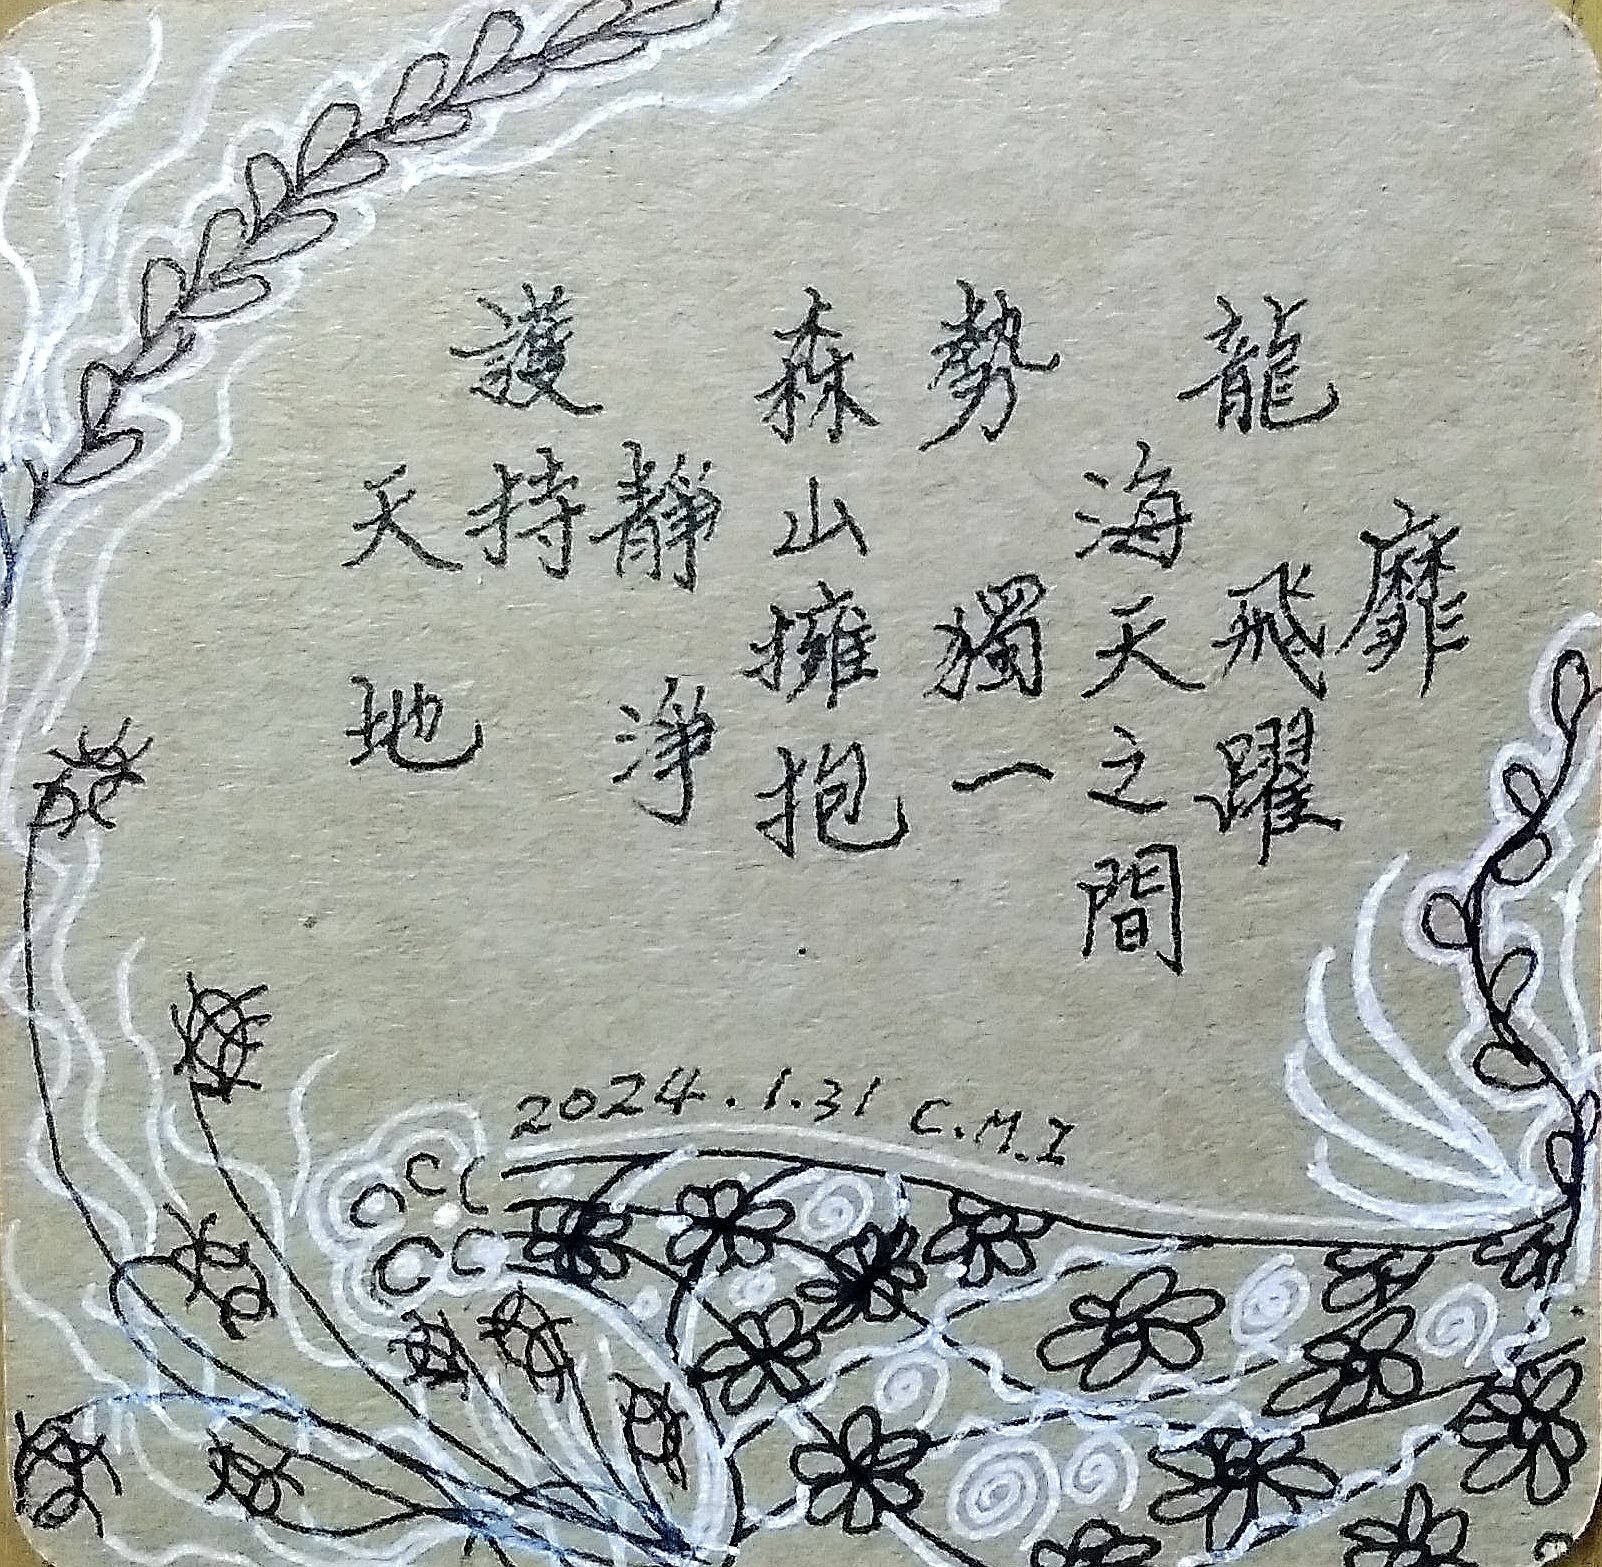 靡
龍飛躍
海天之間
勢獨一
森山擁抱
靜淨
護持
天地
2024.1.31 C.M.I